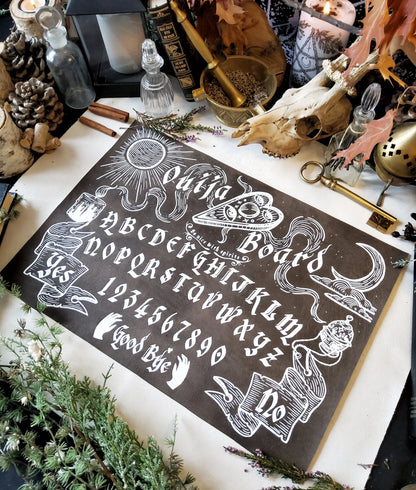 Ouija
Board
ABCDEFGHIJKLM
NOPQRSTUVWXYZ
1234567890
Yes
No
Good Bye